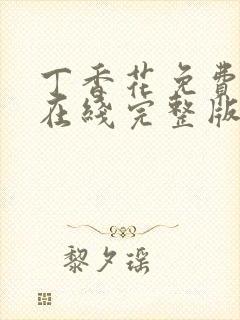 丁香花免費
在綫完整版
黎夕瑶